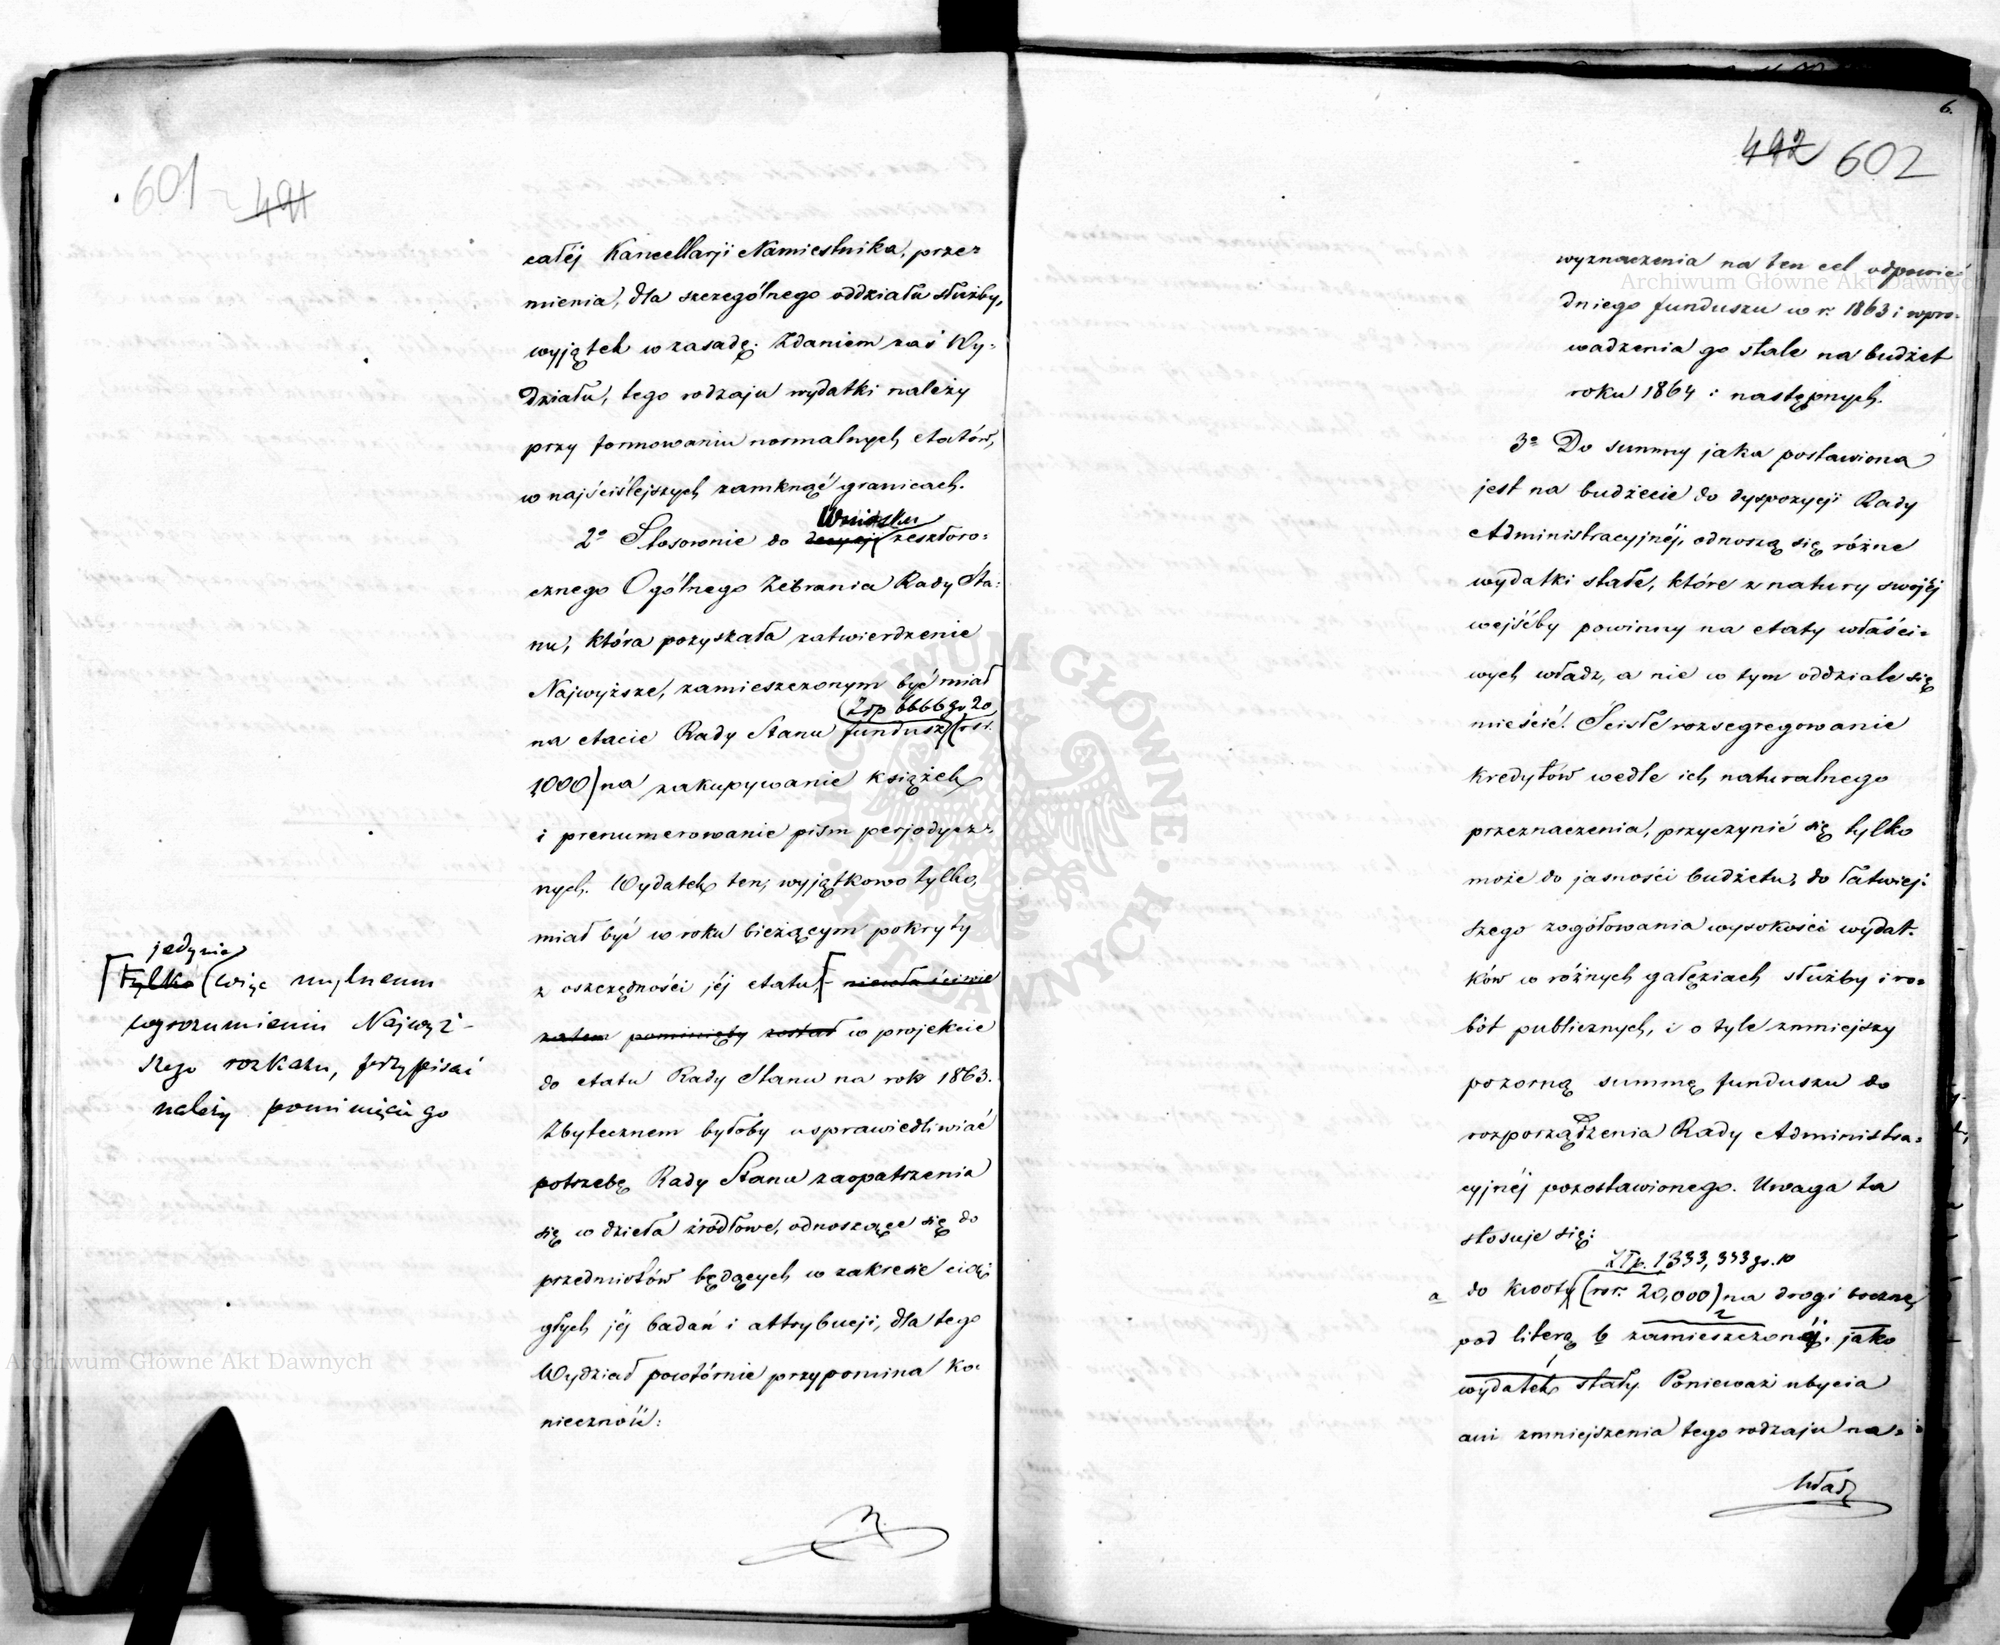 601 491
całéj Kancellarji Namiestnika, prze=
mienia, dla szczególnego oddziału służby,
wyjątek w zasadę. Zdaniem zaś Wy=
działu, tego rodzaju wydatki należy
przy formowaniu normalnych etatów,
w najściślejszych zamknąć granicach.
Wniosku
2o Stosownie do decyzji zeszłoro=
cznego Ogólnego Zebrania Rady Sta=
nu, która pozyskała zatwierdzenie
Najwyższe, zamieszczonym być miał
Złp 6666 gr 20
na etacie Rady Stanu fundusz (rsr.
1000) na zakupywanie książek
i prenumerowanie pism perjodycz=
nych. Wydatek ten, wyjątkowo tylko,
miał być w roku bieżącym pokryty
z oszczędności jéj etatu, niewłaściwie
zatem pominięty został w projekcie
do etatu Rady Stanu na rok 1863.
Zbytecznem byłoby usprawiedliwiać
potrzebę Rady Stanu zaopatrzenia
się w dzieła źródłowe, odnoszące się do
przedmiotów będących w zakresie cią=
głych jéj badań i attrybucji, dla tego
Wydział powtórnie przypomina ko=
nieczność:
jedynie
Tylko więc mylnemu
wyrozumieniu Najwyż-
szego rozkazu, przypisać
należy pominięcie go
6.
492 602
wyznaczenia na ten cel odpowie=
dniego funduszu w r. 1863 i wpro=
wadzenia go stale na budżet
roku 1864 i następnych.
3o Do summy jaka postawiona
jest na budżecie do dyspozycji Rady
Administracyjnéj, odnoszą się różne
wydatki stałe, które z natury swojéj
wejśćby powinny na etaty właści=
wych władz, a nie w tym oddziale się
mieścić. Ścisłe rozsegregowanie
kredytów wedle ich naturalnego
przeznaczenia, przyczynić się tylko
może do jasności budżetu, do łatwiej=
szego zogółowania wysokości wydat=
ków w różnych gałęziach służby i ro=
bót publicznych, i o tyle zmniejszy
pozorną summę funduszu do
rozporządzenia Rady Administra=
cyjnéj pozostawionego. Uwaga ta
stosuje się:
ZŁp. 1333,333 gr. 10
a do kwoty (rsr. 20,000) na drogi boczne,
pod literą b zamieszczonéj, jako
wydatek stały. Ponieważ ubycia
ani zmniejszenia tego rodzaju na=
Archiwum Główne Akt Dawnych
Archiwum Główne Akt Dawnych
ARCHIWUM GŁÓWNE AKT DAWNYCH